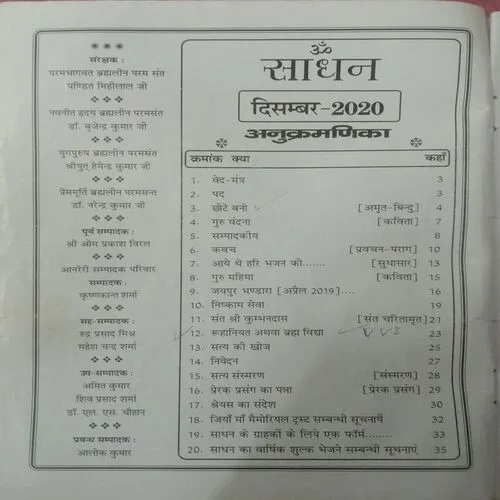 संरक्षक :
परमभागवत ब्रह्मलीन परम संत
पण्डित मिहीलाल जी
नवनीत हृदय ब्रह्मलीन परमसंत
डॉ. बृजेन्द्र कुमार जी
युगपुरुष ब्रह्मलीन परमसंत
श्रीयुत् हेमेन्द्र कुमार जी
प्रेममूर्ति ब्रह्मलीन परमसन्त
डॉ. नरेन्द्र कुमार जी
पूर्व सम्पादक :
श्री ओम प्रकाश विरल
आनरेरी सम्पादक परिवार
सम्पादक :
कृष्णकान्त शर्मा
सह-सम्पादक :
रुद्र प्रसाद मिश्र
महेश चन्द्र शर्मा
उप-सम्पादक :
अमित कुमार
शिव प्रसाद शर्मा
डॉ. एल. एस. चौहान
प्रबन्ध सम्पादक :
आलोक कुमार
ॐ
साधन
दिसम्बर-2020
अनुक्रमणिका
क्रमांक क्या कहाँ
1. वेद-मंत्र 3
2. पद 3
3. छोटे बनो [अमृत-बिन्दु] 4
4. गुरु वंदना [कविता] 7
5. सम्पादकीय 8
6. कवच [प्रवचन-पराग] 10
7. आये थे हरि भजन को....... [सुधासार] 13
8. गुरु महिमा [कविता] 15
9. जयपुर भण्डारा [अप्रैल 2019].... 16
10. निष्काम सेवा 19
11. संत श्री कुम्भनदास [संत चरितामृत] 21
12. रूहानियत अथवा ब्रह्म विद्या 23
13. सत्य की खोज 25
14. निवेदन 27
15. सत्य संस्मरण [संस्मरण] 28
16. प्रेरक प्रसंग का पन्ना [प्रेरक प्रसंग] 29
17. श्रेयस का संदेश 30
18. जियाँ माँ मैमोरियल ट्रस्ट सम्बन्धी सूचनायें 32
19. साधन के ग्राहकों के लिये एक फॉर्म........ 33
20. साधन का वार्षिक शुल्क भेजने सम्बन्धी सूचनाएं 35